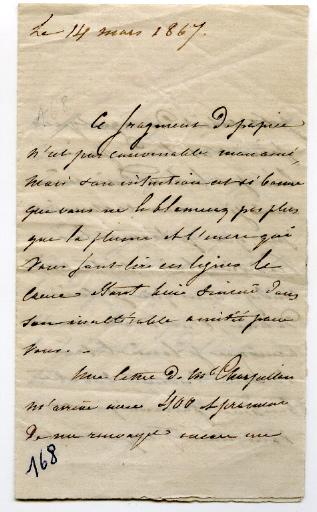 Le 14 mars 1867.
Ce fragment de papier
n'est pas convenable mon ami,
mais son intention est si bonne
que vous ne le blamerez pas plus
que la plume et l'encre qui
vous font lire ces lignes le
coeur étant bien sincère dans
son inaltérable amitié pour
vous. -
Une lettre de Mr
m'arrive avec 400
de me envoyer encore une
168